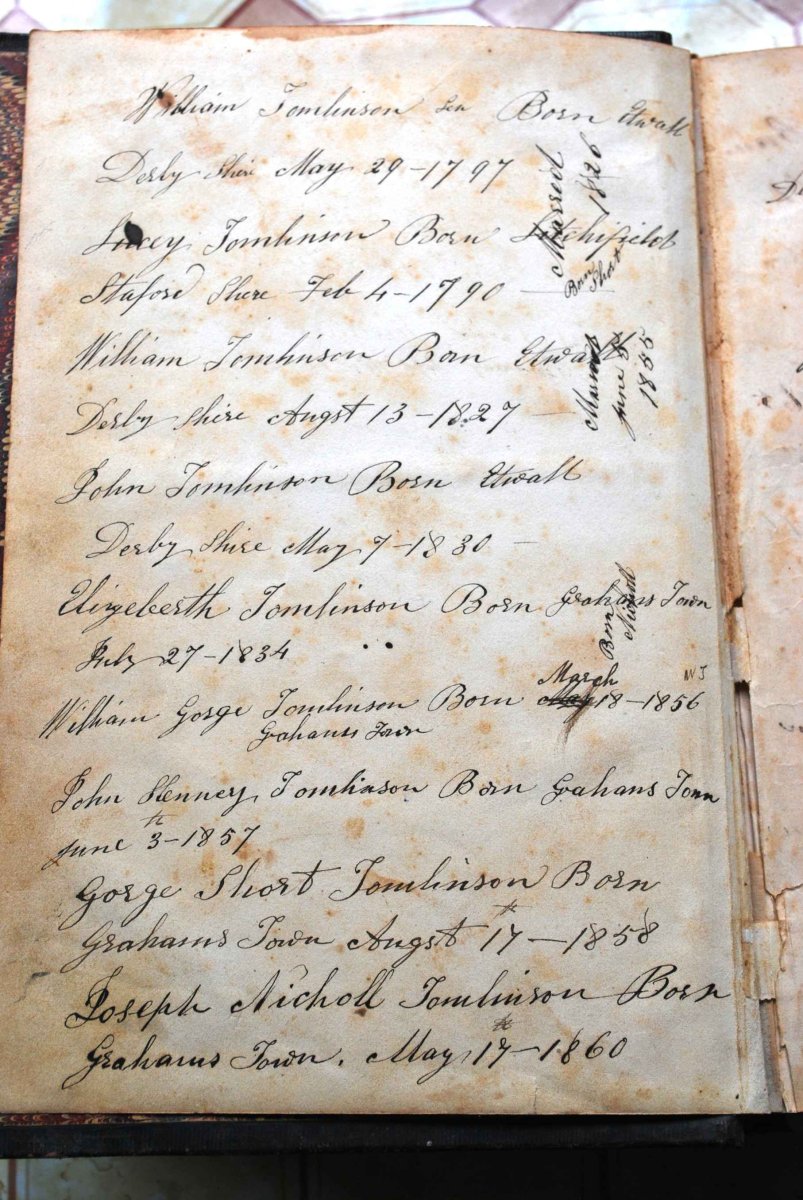 William Tomlinson Sen Born Etwall
Derby Shire May 29-1797
Married 1826
Lucey Tomlinson Born Litchifield
Staford Shire Feb 4-1790
Born Short
William Tomlinson Born Etwall
Derby Shire Augst 13-1827
Married June 5 1855
John Tomlinson Born Etwall
Derby Shire May 7-1830
Elizeberth Tomlinson Born Grahans Town
July 27-1834
Born Nicholl
William Gorge Tomlinson Born March 18-1856
Grahams Town
John Henney Tomlinson Born Grahans Town
June 3th-1857
Gorge Short Tomlinson Born
Grahams Town Augst 17th-1858
Joseph Nicholl Tomlinson Born
Grahams Town. May 17th-1860